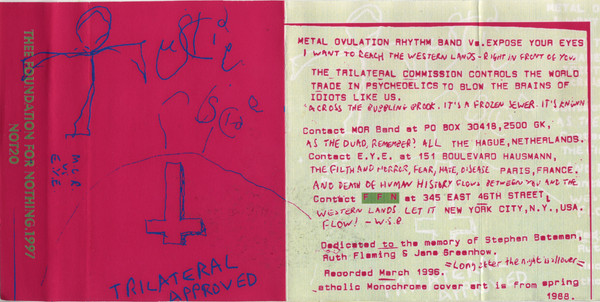 THEE FOUNDATION FOR NOTHING.1997
NOT20
M.O.R
vs
E.Y.E
Side
TRILATERAL
APPROVED
METAL OVULATION RHYTHM BAND Vs.EXPOSE YOUR EYES
I WANT TO REACH THE WESTERN LANDS - RIGHT IN FRONT OF YOU,
THE TRILATERAL COMMISSION CONTROLS THE WORLD
TRADE IN PSYCHEDELICS TO BLOW THE BRAINS OF
IDIOTS LIKE US.
ACROSS THE BUBBLING BROOK. IT'S A FROZEN SEWER. IT'S KNOWN
Contact MOR Band at PO BOX 30418,2500 GK,
AS THE DUAD, REMEMBER? ALL THE HAGUE,NETHERLANDS.
Contact E.Y.E. at 151 BOULEVARD HAUSMANN,
THE FILTH AND HORROR, FEAR, HATE, DISEASE PARIS,FRANCE.
AND DEATH OF HUMAN HISTORY FLOWS BETWEEN YOU AND THE
Contact F F N at 345 EAST 46TH STREET,
WESTERN LANDS. LET IT NEW YORK CITY,N.Y.,USA.
FLOW! - W.S.B.
Dedicated to the memory of Stephen Bateman,
Ruth Fleming & Jane Greenhow.
=Long after the night is over=
Recorded March 1996.
atholic Monochrome cover art is from spring
1988.